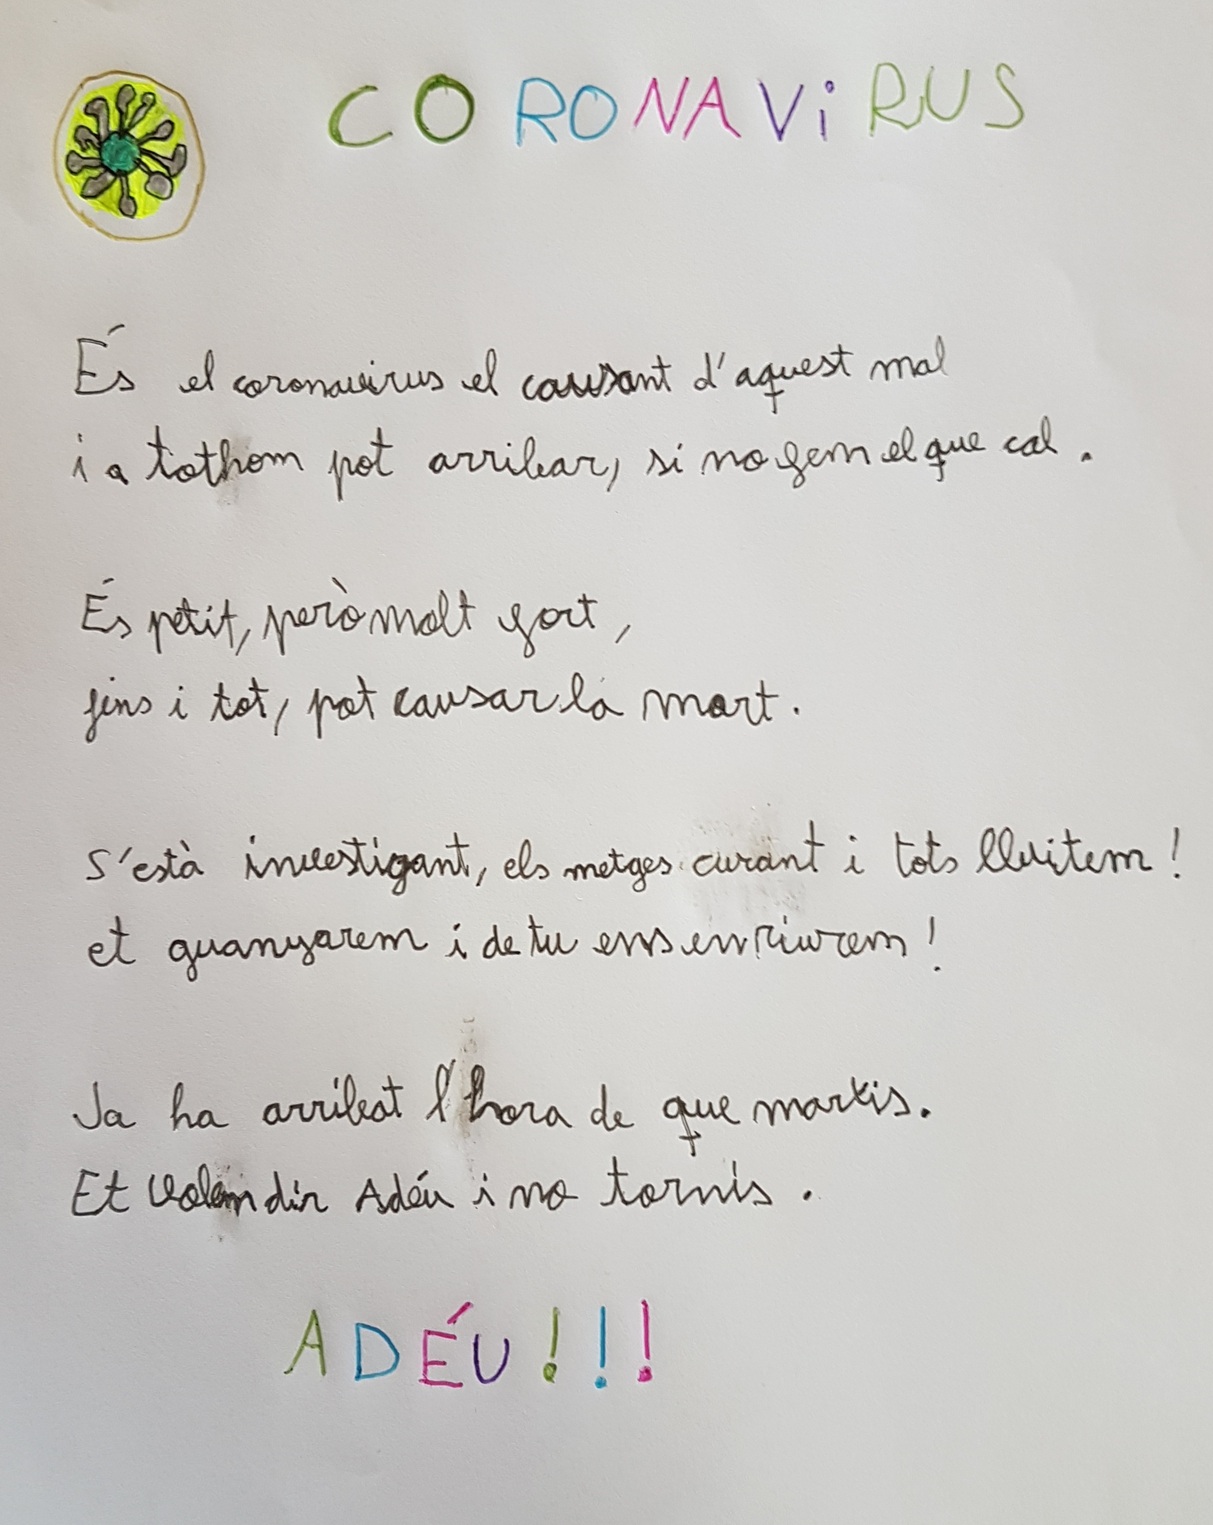 CORONAViRUS
És el coronavirus el causant d'aquest mal
i a tothom pot arribar, si no fem el que cal.
És petit, però molt fort,
fins i tot, pot causar la mort.
S'està investigant, els metges curant i tots lluitem!
et guanyarem i de tu ens en riurem!
Ja ha arribat l'hora de que marxis.
Et volem dir Adéu i no tornis.
ADÉU!!!